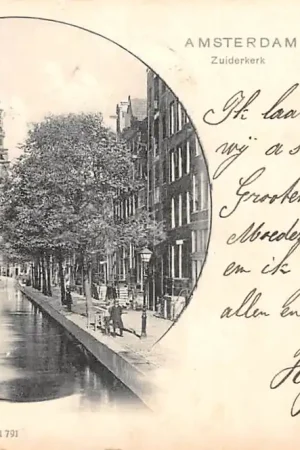 AMSTERDAM
Zuiderkerk
Ik laa
wij a s
Grooten
Moeder
em ik
allen en
791